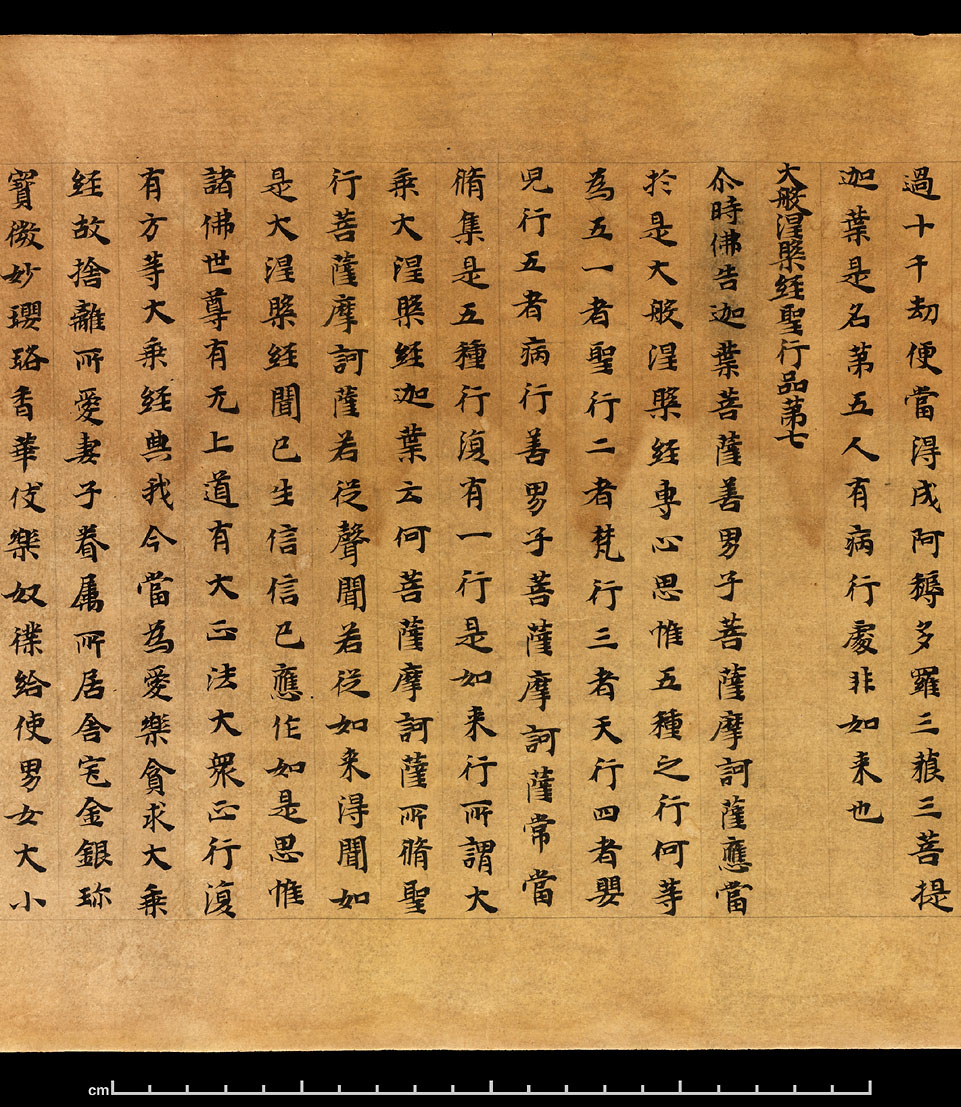 過十千劫便當得成阿耨多羅三藐三菩提
迦葉是名苐五人有病行處非如来也
大般涅槃經聖行品苐七
尒時佛告迦葉菩薩善男子菩薩摩訶薩應當
於是大般涅槃經專心思惟五種之行何等
為五一者聖行二者梵行三者天行四者嬰
兒行五者病行善男子菩薩摩訶薩常當
脩集是五種行復有一行是如来行所謂大
乘大涅槃經迦葉云何菩薩摩訶薩所脩聖
行菩薩摩訶薩若從聲聞若從如来得聞如
是大涅槃經聞已生信信已應作如是思惟
諸佛世尊有无上道有大正法大衆正行復
有方等大乘經典我今當為愛樂貪求大乘
經故捨離所愛妻子眷属所居舍宅金銀珎
寶微妙瓔珞香華伎樂奴僕給使男女大小
cm